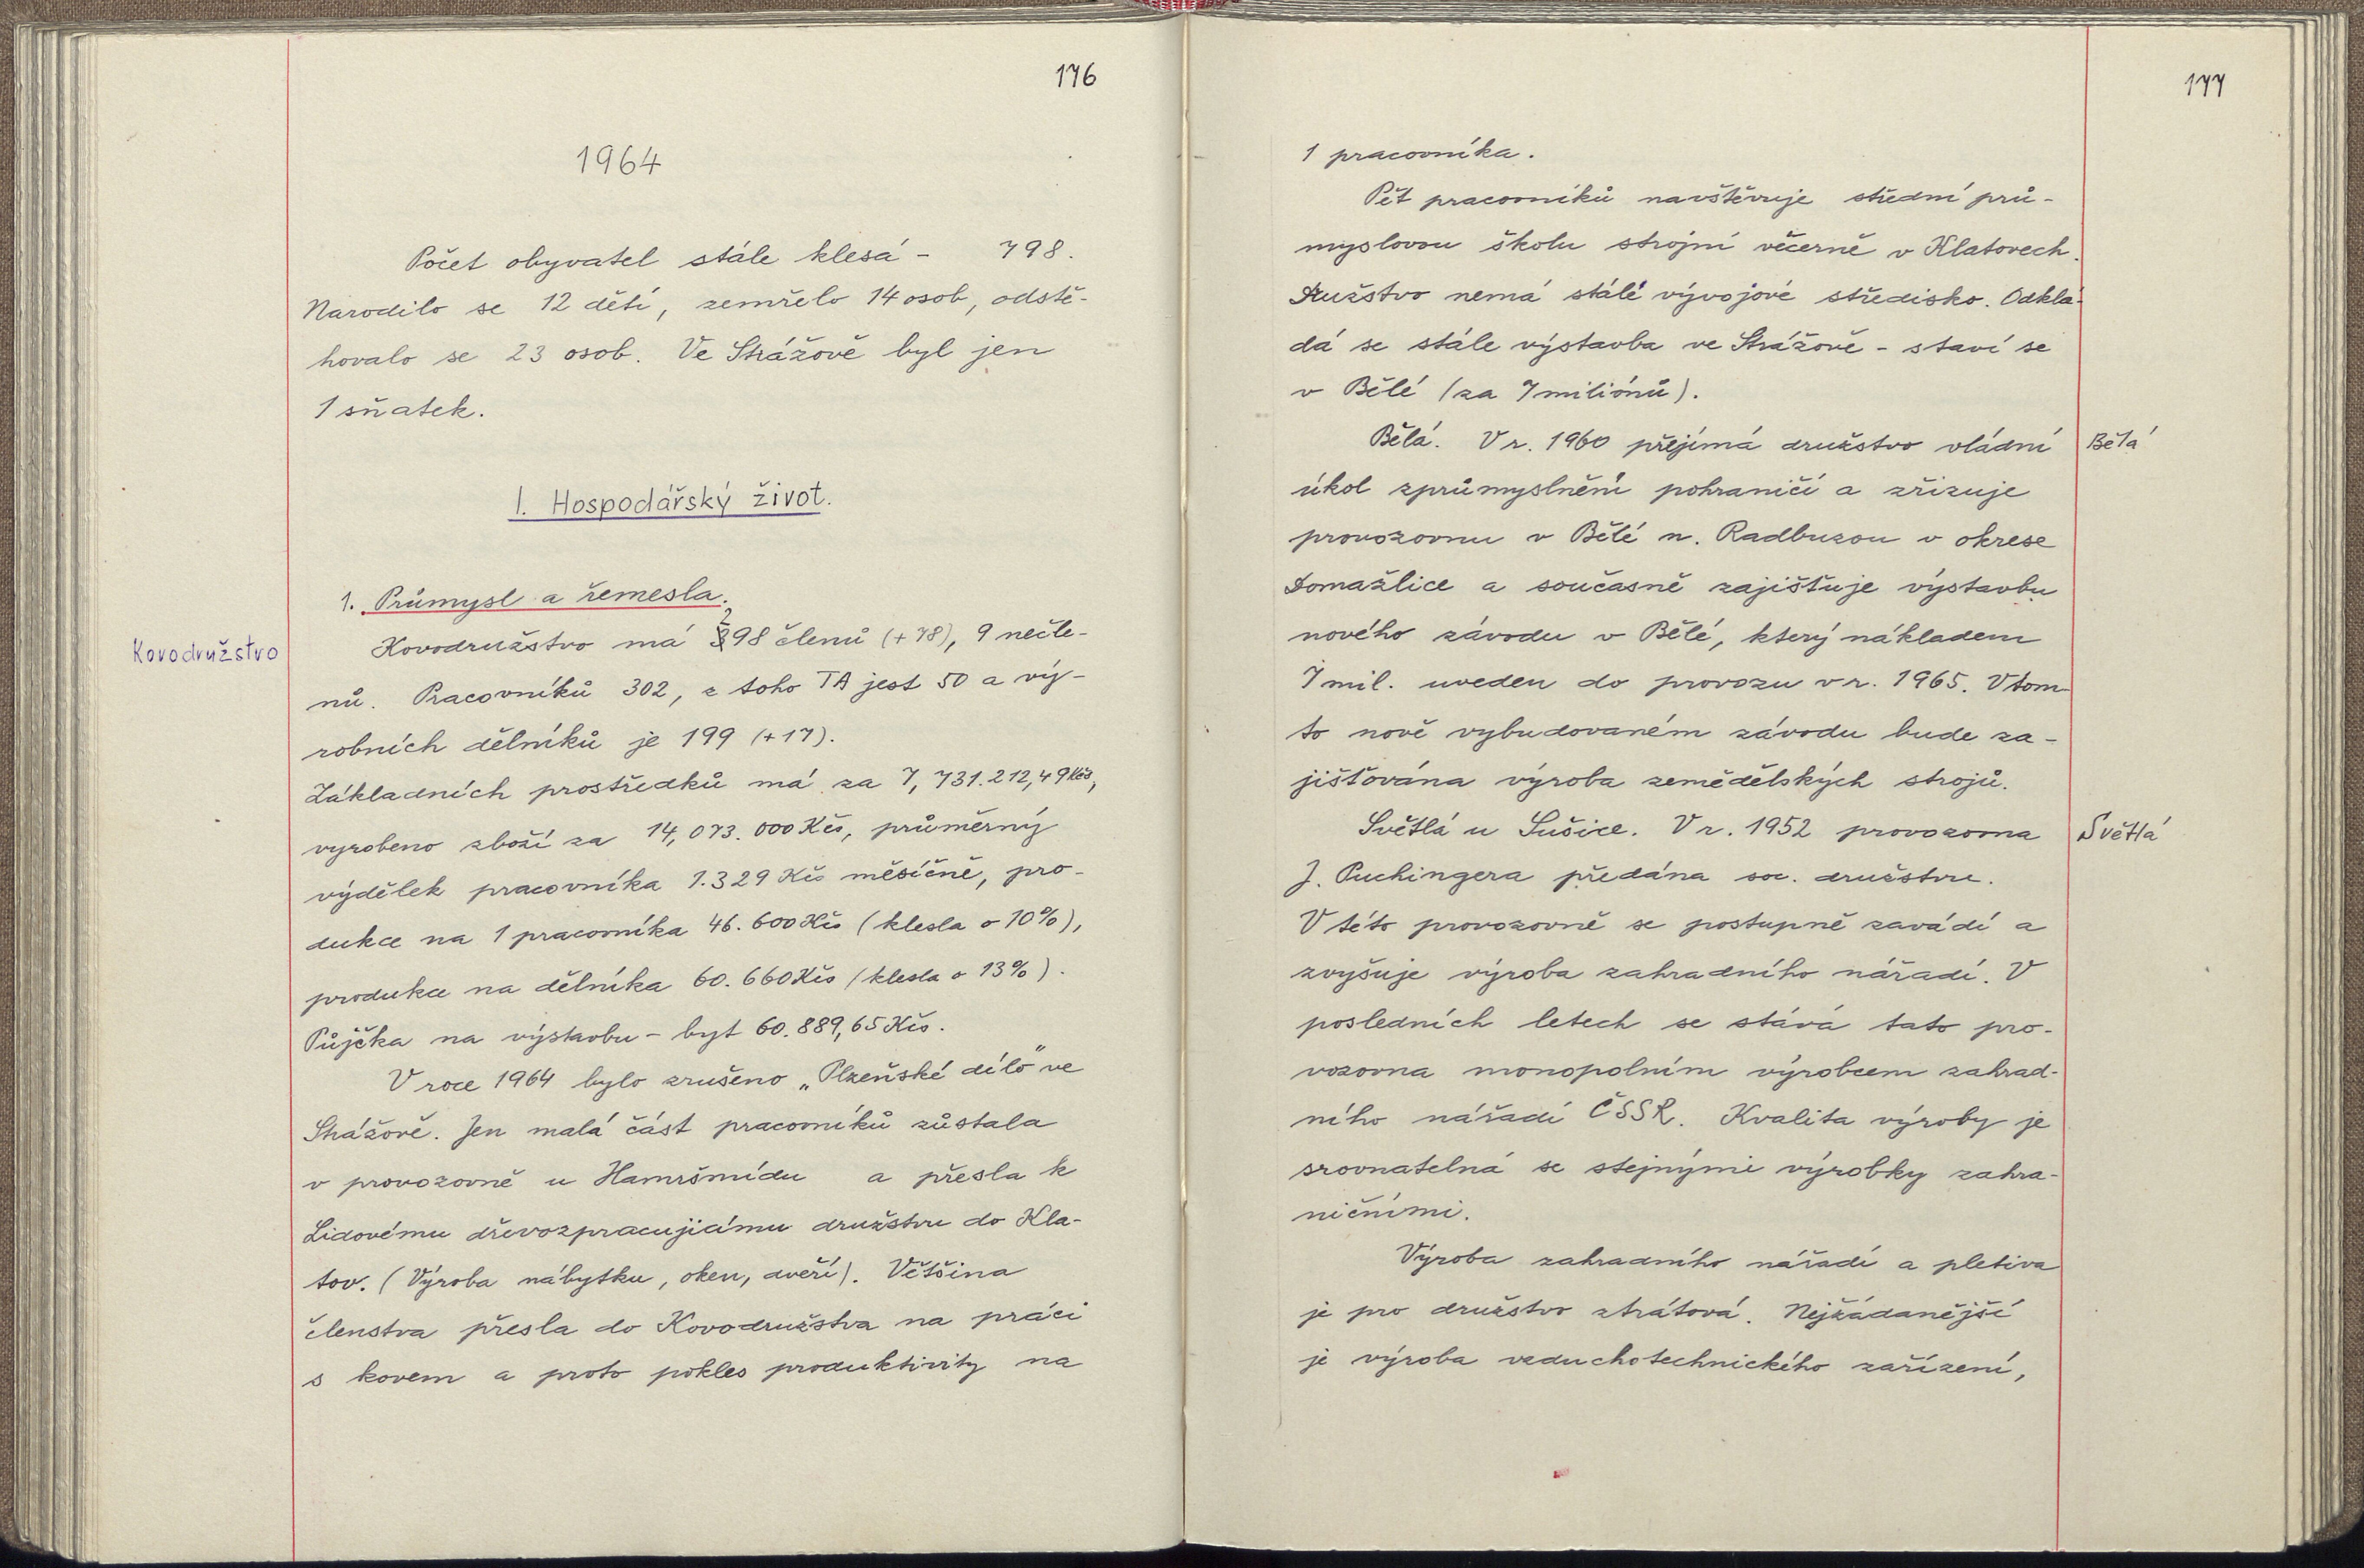 176
1964
Počet obyvatel stále klesá - 798.
Narodilo se 12 dětí, zemřelo 14 osob, odstě-
hovalo se 23 osob. Ve Strážově byl jen
1 sňatek.
I. Hospodářský život.
1. Průmysl a řemesla.
Kovodružstvo
Kovodružstvo má 298 členů (+78), 9 nečle-
nů. Pracovníků 302, z toho TA jest 50 a vý-
robních dělníků je 199 (+17).
Základních prostředků má za 7,731.212,49 Kčs,
vyrobeno zboží za 14,073.000 Kčs, průměrný
výdělek pracovníka 1.329 Kčs měsíčně, pro-
dukce na 1 pracovníka 46.600 Kčs (klesla o 10%),
produkce na dělníka 60.660 Kčs (klesla o 13%).
Půjčka na výstavbu - byt 60.889,65 Kčs.
V roce 1964 bylo zrušeno „Plzeňské dílo" ve
Strážově. Jen malá část pracovníků zůstala
v provozovně u Hamršmídu a přesla k
Lidovému dřevozpracujícímu družstvu do Kla-
tov. (Výroba nábytku, oken, dveří). Většina
členstva přesla do Kovodružstva na práci
s kovem a proto pokles produktivity na
177
1 pracovníka.
Pět pracovníků navštěvuje střední prů-
myslovou školu strojní věčerně v Klatovech.
Družstvo nemá stálé vývojové středisko. Odklá-
dá se stále výstavba ve Strážově - staví se
v Bělé (za 7 miliónů).
Bělá. V r. 1960 přejímá družstvo vládní
Bělá
úkol zprůmyslnění pohraničí a zřizuje
provozovnu v Bělé n. Radbuzou v okrese
Domažlice a současně zajišťuje výstavbu
nového závodu v Bělé, který nákladem
7 mil. uveden do provozu v r. 1965. V tom-
to nově vybudovaném závodu bude za-
jišťována výroba zemědělských strojů.
Světlá u Sušice. V r. 1952 provozovna
Světlá
J. Puchingera předána soc. družstvu.
V této provozovně se postupně zavádí a
zvyšuje výroba zahradního nářadí. V
posledních letech se stává tato pro-
vozovna monopolním výrobcem zahrad-
ního nářadí ČSSR. Kvalita výroby je
srovnatelná se stejnými výrobky zahra-
ničními.
Výroba zahradního nářadí a pletiva
je pro družstvo ztrátová. Nejžádanější
je výroba vzduchotechnického zařízení,